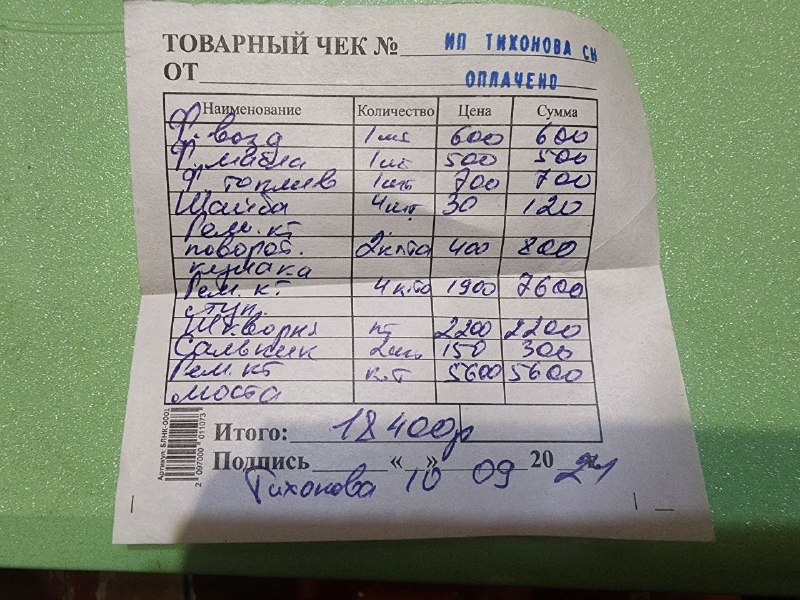 ТОВАРНЫЙ ЧЕК № ИП ТИХОНОВА СН
ОТ ОПЛАЧЕНО
Наименование Количество Цена Сумма
Ф. возд 1шт 600 600
Ф. масла 1шт 500 500
Ф. топлив 1шт 700 700
Шайба 4шт 30 120
Рем. кт
поворот. 2к-та 400 800
кулака
Рем. кт 4к-та 1900 7600
ступ.
Шкворня кт 2200 2200
Сальник 2шт 150 300
Рем кт к-т 5600 5600
моста
Итого: 18400р
Подпись « » 20
Тихонова 10 09 24
Артикул: БЛНК-0001
2 097000 011073